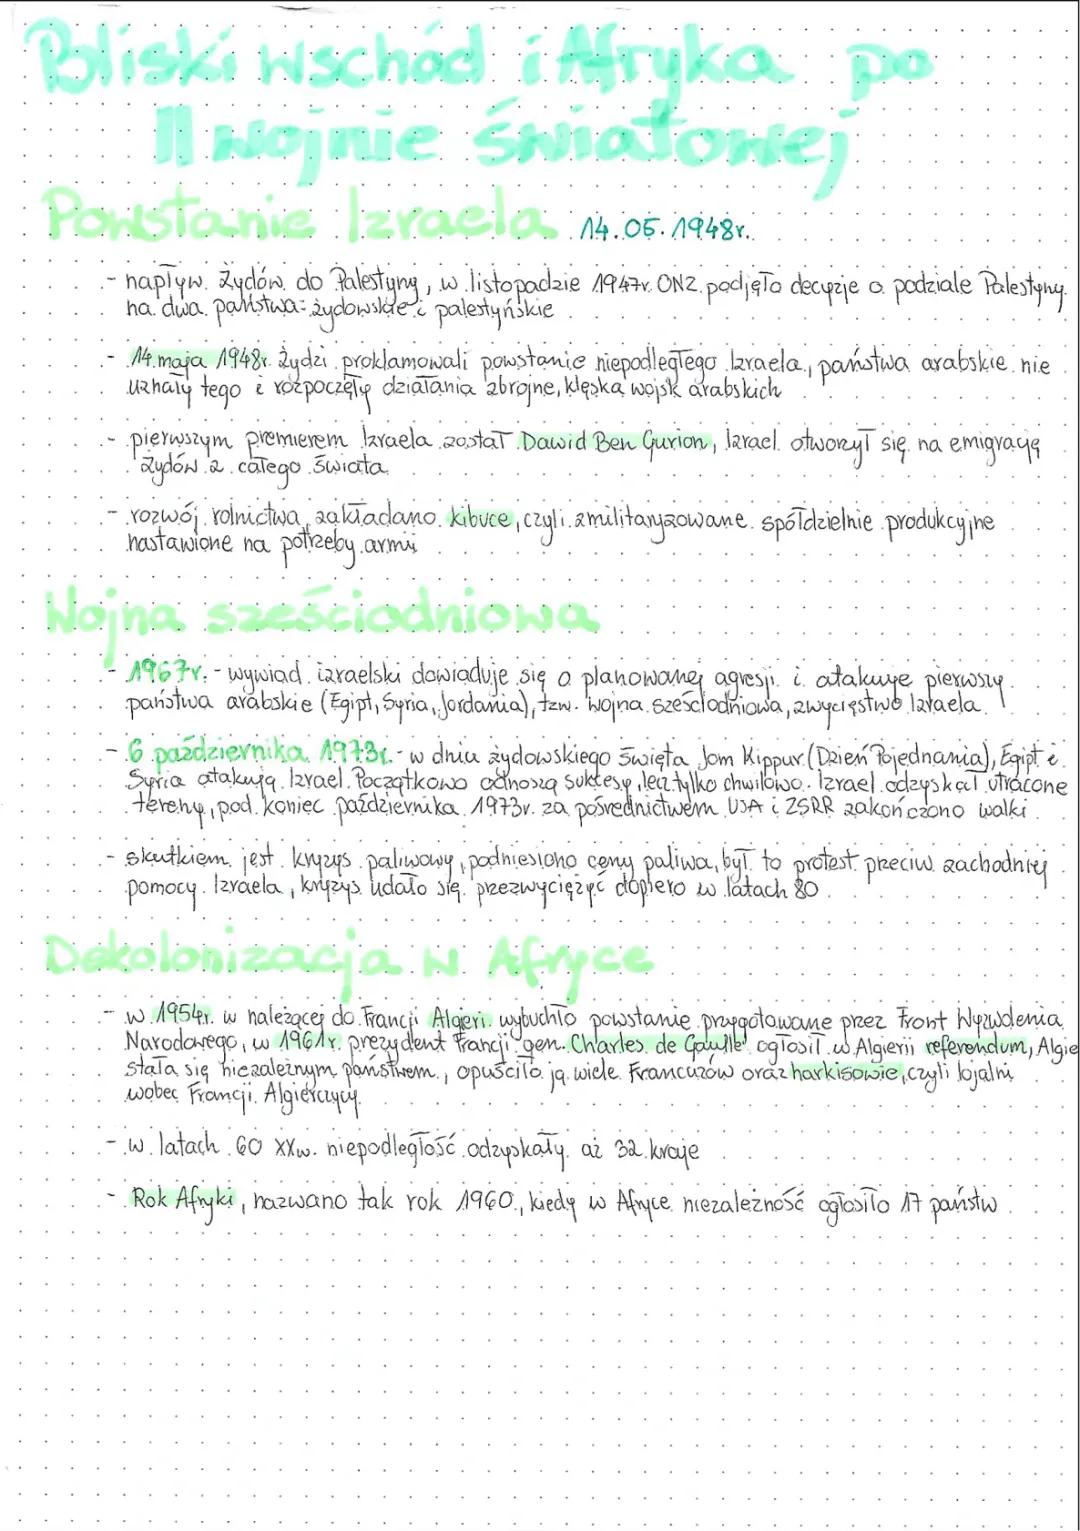 Bliski Wschód i Afryka po
II Wojnie Światowej
Powstanie Izraela 14.05.1948r.
- napływ Żydów do Palestyny, w listopadzie 1947r. ONZ podjęło decyzje o podziale Palestyny
na dwa państwa: żydowskie i palestyńskie
- 14 maja 1948r. Żydzi proklamowali powstanie niepodległego Izraela, państwa arabskie nie
uznały tego i rozpoczęły działania zbrojne, klęska wojsk arabskich
- pierwszym premierem Izraela został Dawid Ben Gurion, Izrael otworzył się na emigrację
Żydów z całego świata
- rozwój rolnictwa, zakładano kibuce, czyli zmilitaryzowane spółdzielnie produkcyjne
nastawione na potrzeby armii
Wojna sześciodniowa
- 1967r. - wywiad izraelski dowiaduje się o planowanej agresji i atakuje pierwszy
państwa arabskie (Egipt, Syria, Jordania), tzw. wojna sześciodniowa, zwycięstwo Izraela
- 6 października 1973r. - w dniu żydowskiego święta Jom Kippur (Dzień Pojednania), Egipt i
Syria atakują Izrael. Początkowo odnoszą sukcesy, lecz tylko chwilowo. Izrael odzyskał utracone
tereny, pod koniec października 1973r. za pośrednictwem USA i ZSRR zakończono walki
- skutkiem jest kryzys paliwowy, podniesiono ceny paliwa, był to protest przeciw zachodniej
pomocy Izraela, kryzys udało się przezwyciężyć dopiero w latach 80
Dekolonizacja w Afryce
- w 1954r. w należącej do Francji Algieri wybuchło powstanie przygotowane przez Front Wyzwolenia
Narodowego, w 1961r. prezydent Francji gen. Charles de Gaulle ogłosił w Algierii referendum, Algie
stała się niezależnym państwem, opuściło ją wiele Francuzów oraz harkisowie, czyli lojalni
wobec Francji Algierczycy
- w latach 60 XXw. niepodległość odzyskały aż 32 kraje
- Rok Afryki, nazwano tak rok 1960, kiedy w Afryce niezależność ogłosiło 17 państw